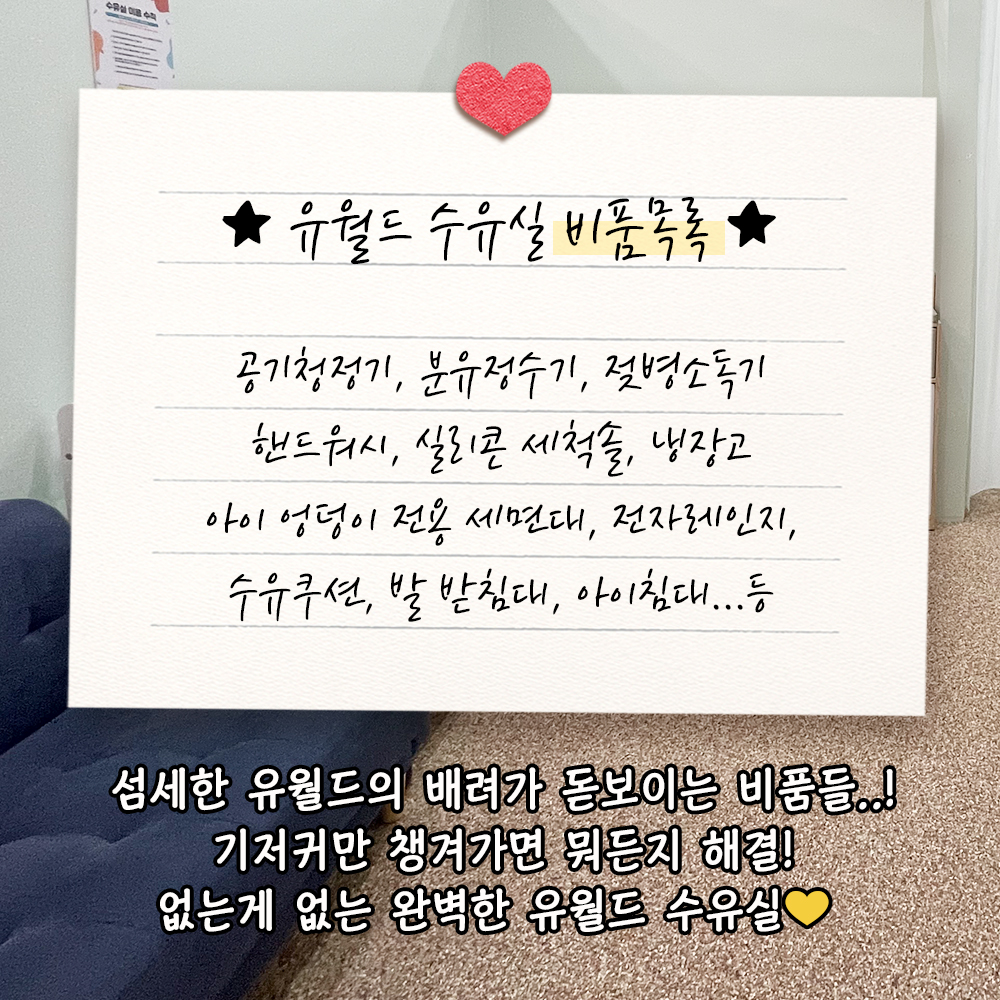 수유실 이용 수칙
★ 유월드 수유실 비품목록 ★
공기청정기, 분유정수기, 젖병소독기
핸드워시, 실리콘 세척솔, 냉장고
아이 엉덩이 전용 세면대, 전자레인지,
수유쿠션, 발 받침대, 아이침대...등
섬세한 유월드의 배려가 돋보이는 비품들..!
기저귀만 챙겨가면 뭐든지 해결!
없는게 없는 완벽한 유월드 수유실💛